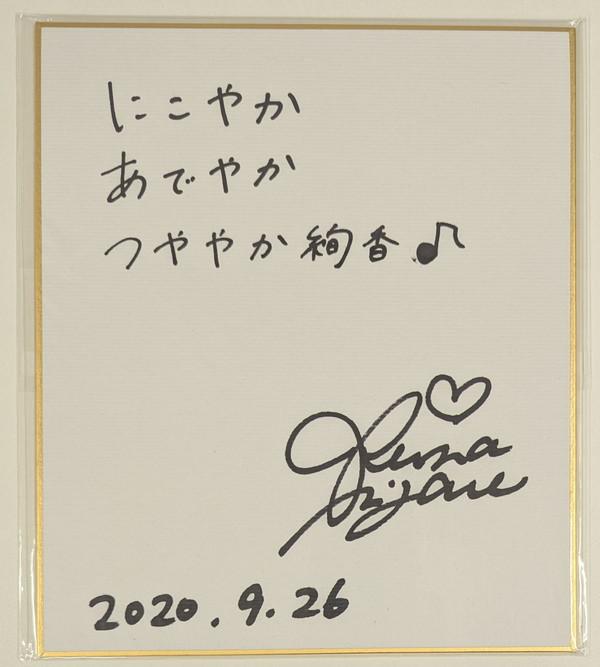 にこやか
あでやか
つややか絢香♪
2020.9.26